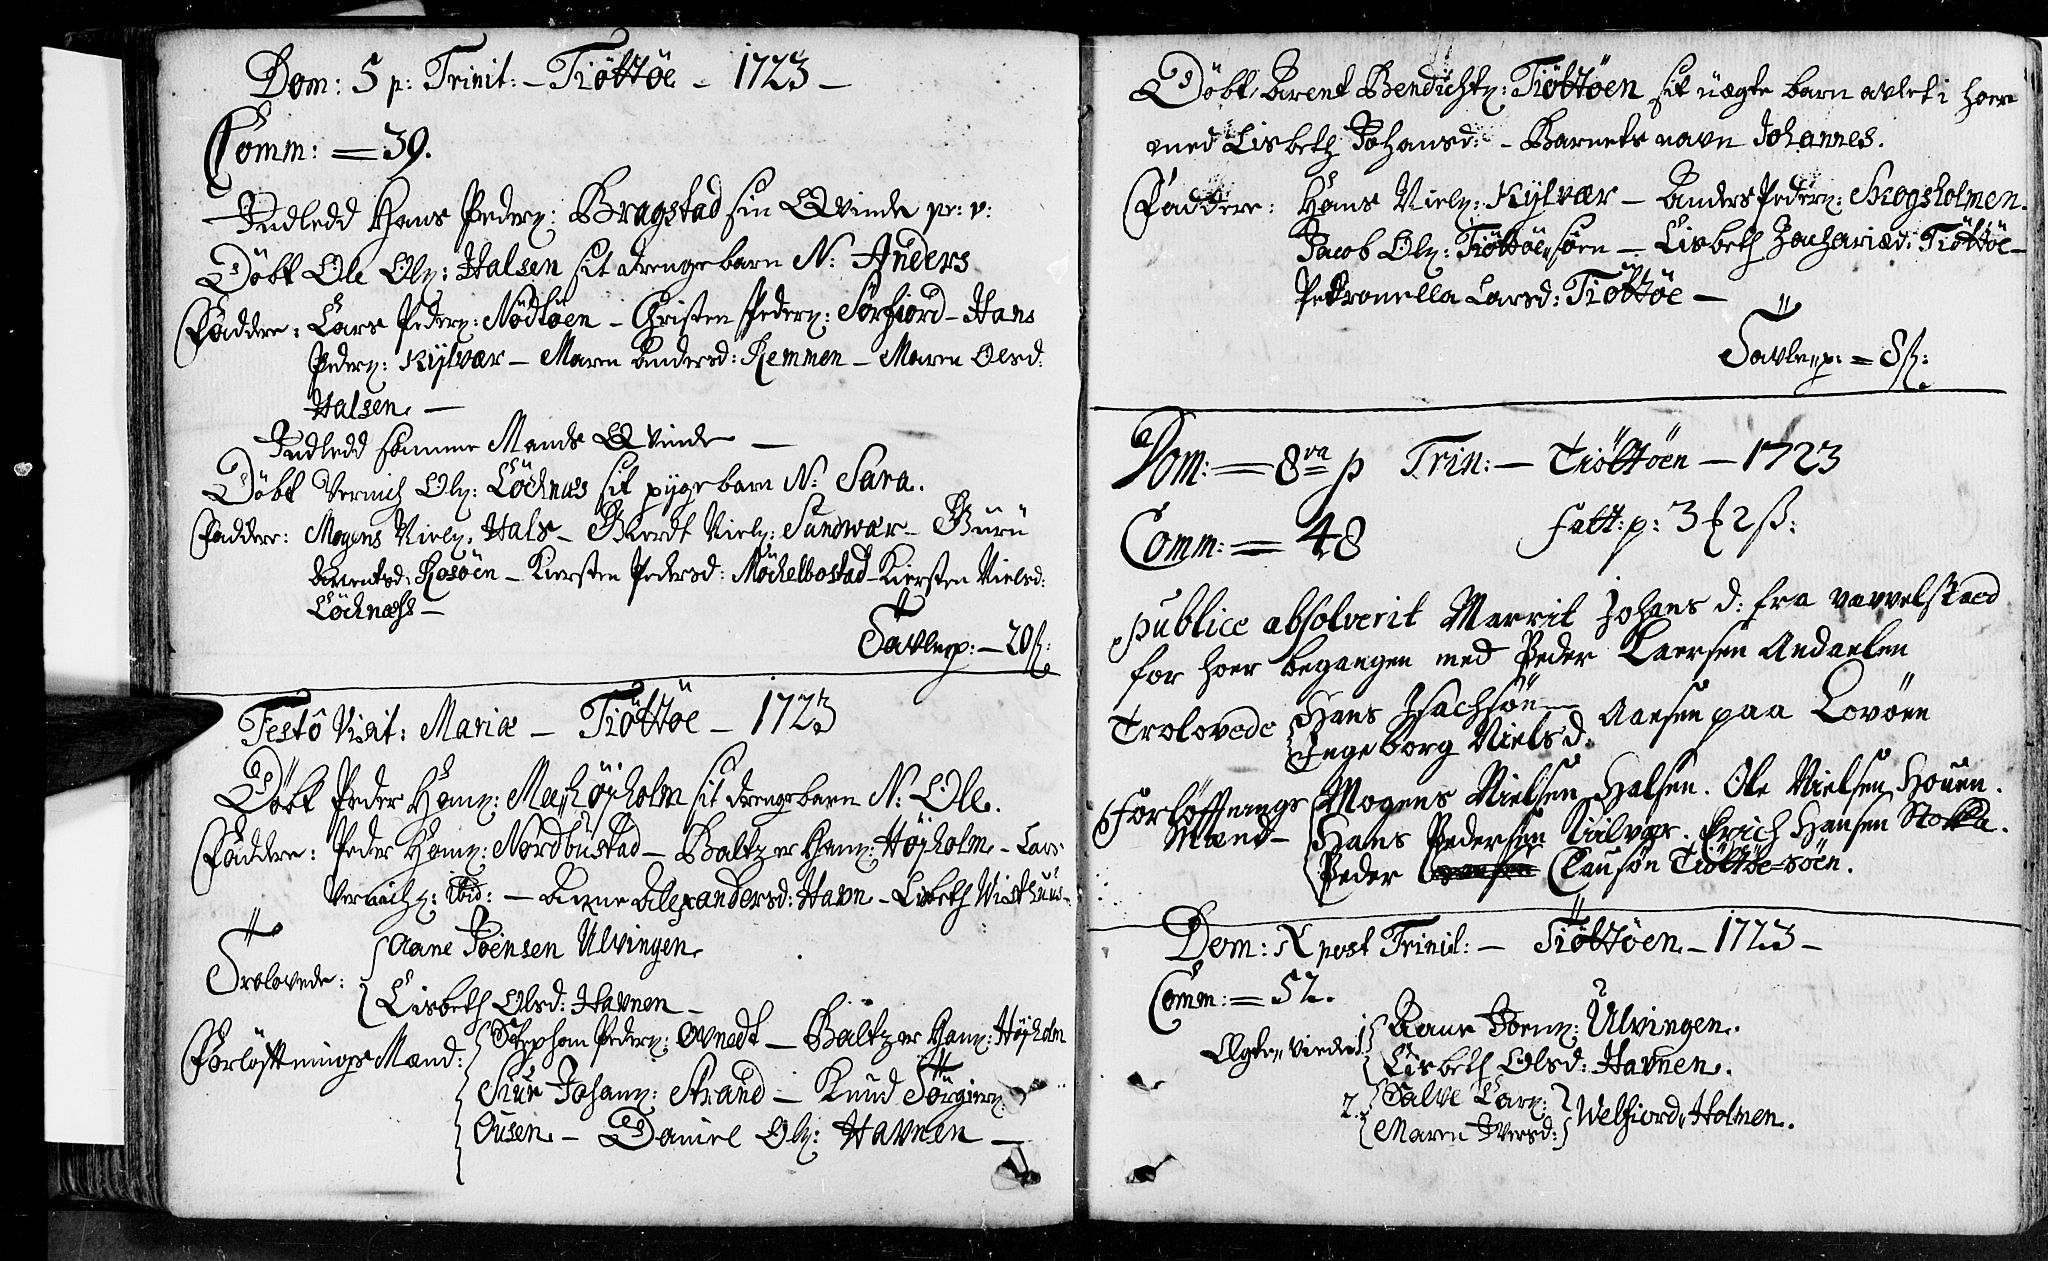 Dom: 5 p: Trinit: – Tiöttöe – 1723 –
Comm: = 39.
Indledd Hans Peders: Bragstad sin Qvinde pr: v:
Döbt Ole Ols: Halsen sit drengebarn N: Anders
Faddre: Lars Peders: Nödtöen – Christen Peders: Sörfiord – Hans
Peders: Kylvær – Maren Andersd: Remmen – Maren Olsd:
Halsen –
Indledd samme Mands Qvinde –
Döbt Vernich Ols: Löchnæs sit pigebarn N: Sara.
Faddere: Mogens Niels: Hals – Giördt Niels: Sundvær – Guru
Arentsd: Rosöen – Kiersten Pedersd: Möchelbostad – Kiersten Nielsd:
Löchnæss –
Tavlep: – 20 s:
Festô Visit: Mariæ – Tiöttöe – 1723
Döbt Peder Hans: Mashöjholm sit drengebarn N: Ole.
Faddre: Peder Hans: Nordbustad – Baltzer Hans: Höjholm – Lars
Vernichs: ibid: – Anne Alexandersd: Havn – Lisbeth Wisthuus –
Trolovede: Aane Joensen Ulvingen
Lisbeth Olsd: Havnen –
Forlöfftnings Mænd: Stephan Peders: Ovnedt – Baltzer Hans: Höjholm
Siur Johans: Strand – Knud Törgiers:
Ousen – Daniel Ols: Havnen –
Döbt Barent Bendichts: Tiöttöen sit uægte barn avlet i hoer
med Lisbeth Johansd: – Barnets navn Johannes.
Faddere: Hans Niels: Kylvær – Anders Peders: Skogsholmen.
Jacob Ols: Tiöttöe söen – Lisbeth Zachariæd: Tiöttöe –
Petronella Larsd: Tiöttöe –
Tavlep: = 8 s:
Dom: = 8va p Trin: – Tiöttöen – 1723
Comm: = 48 fatt: p: 3 2 ß:
publice absolverit Marrit Johans d: fra vævelstaed
for hoer begangen med Peder Laersen Andaelen
Trolovede Hans Isachsön – Aansen paa Lovöen
Ingeborg Nielsd:
Forlöffnings Mogens Nielsen Halsen. Ole Nielsen Houen.
Mænd – Hans Pedersen Kiilvær. Erich Hansen Stokka.
Peder Clausön Tiöttöe-söen.
Dom: X post Trinit: – Tiöttöen – 1723 –
Comm: = 52.
Ægte viede 1. Aane Joens: Ulvingen.
Lisbeth Olsd: Havnen.
2. Salve Lars:
Maren Iversd: Welfiord, Holmen.